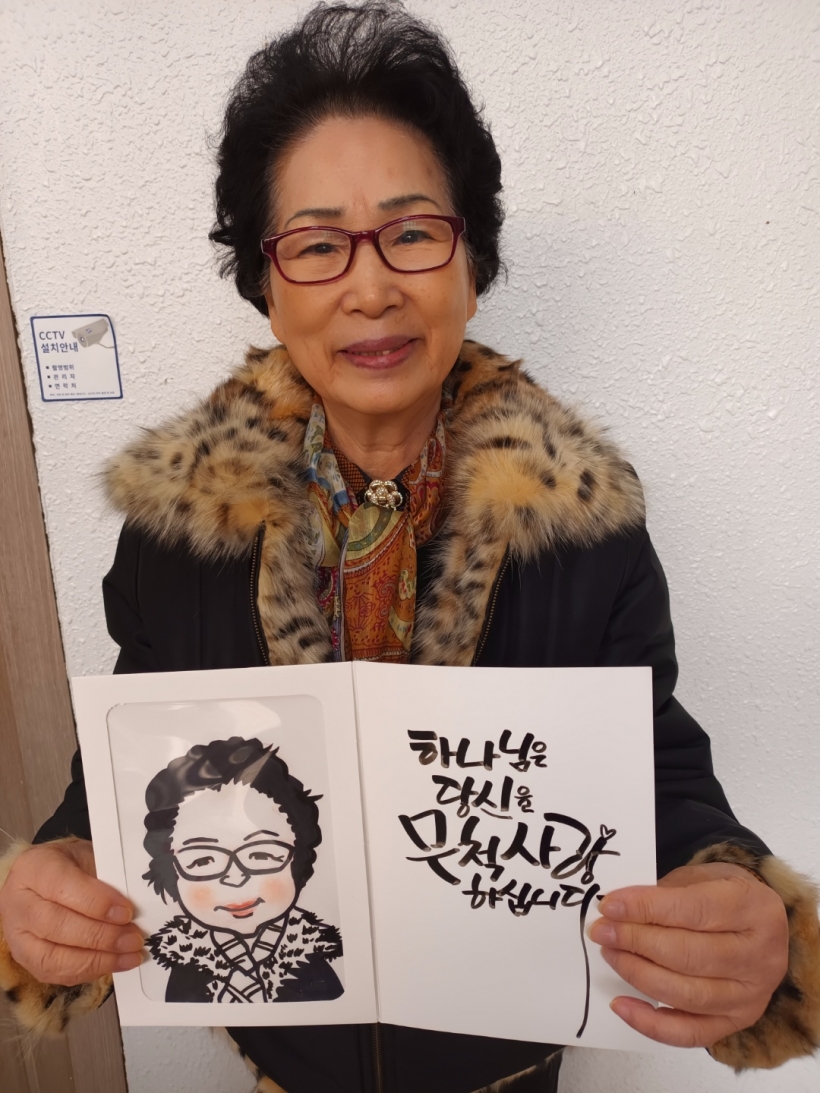 CCTV
설치안내
■ 촬영범위
■ 관 리 자
■ 연 락 처
하나님은
당신을
무척사랑
하십니다